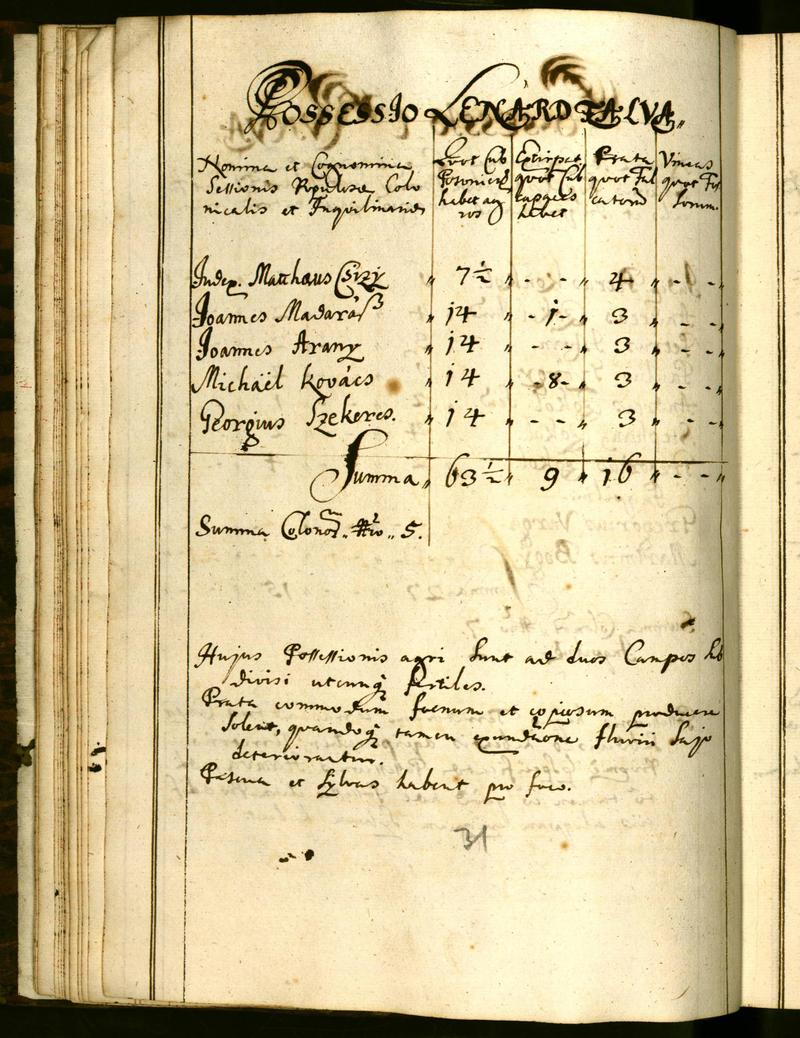 POSSESSIO LENÁRD FALVA,,
Nomina et Cognomina
Sessionis Populosæ Colo
nicalis et Inquilinariæ
Quot Cub
Posoniens
habet ag
ros
Extirpat
quot Cub
capaces
habet
Prata
quot Fal
catorum
Vineas
quot Fos
sorum.
Judex. Matthæus Csizy „ 7½ „ - - „ 4 „ - - „
Joannes Madaráß „ 14 „ - 1 - „ 3 „ - - „
Joannes Arany „ 14 „ - - „ 3 „ - - „
Michaël Kovács „ 14 „ - 8 - „ 3 „ - - „
Georgius Szekeres. „ 14 „ - - „ 3 „ - - „
Summa „ 63½ „ 9 „ 16 „ - - „
Summa Colonor „ Nro „ 5.
Hujus Possessionis agri sunt ad duos Campos sub
divisi utcunq fertiles.
Prata commodum foenum et copiosum producere
solent, quandoq tamen exundaone fluvii Sajo
deteriorantur.
Pascua et Sylvas habent pro foco.
31